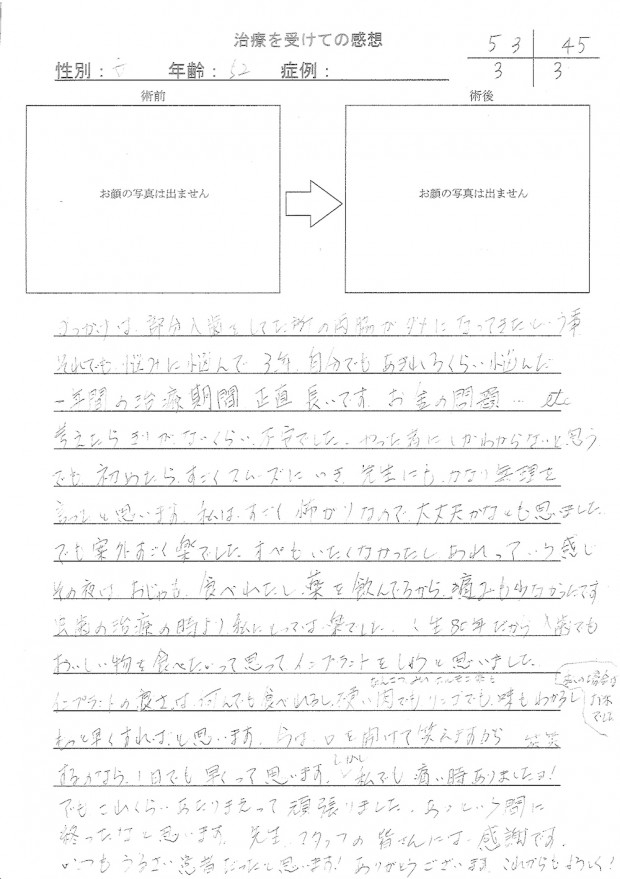 治療を受けての感想
性別： 年齢：52 症例：
5 3 45
3 3
術前 術後
お顔の写真は出ません お顔の写真は出ません
きっかけは、部分入歯をしてた所の歯がダメになってきたという事
それでも悩みに悩んで3年、自分でもあきれるくらい悩んだ
一年間の治療期間 正直 長いです。お金の問題… etc
考えたらきりがないくらい、不安でした。やった者にしかわからないと思う
でも、初めたら、すごくスムーズにいき、先生にも、かなり無理を
言ったと思います。私は、すごく怖がりなので、大丈夫かなとも思いました
でも案外すごく楽でした。すべもいたくなかったし あれっていう感じ
その夜は おじやも、食べれたし、薬を飲んでるから、痛みも少なかったです
虫歯の治療の時より私にとっては楽でした。人生80年だから 入歯でも
おいしい物を食べたいって思ってインプラントをしようと思いました。
インプラントの良さは、何んでも食べれるし、硬い肉でもリンゴでも、味もわかるし
もっと早くすればと思います。今は、口を開けて笑えますから 笑笑
するなら、1日でも早くって思います。しかし私でも痛い時ありましたヨ！
でもこれくらいあたりまえって頑張りました。あっという間に
終ったなと思います。先生、スタッフの皆さんには、感謝です。
いつもうるさい患者だったと思います！ありがとうございます、これからもよろしく！